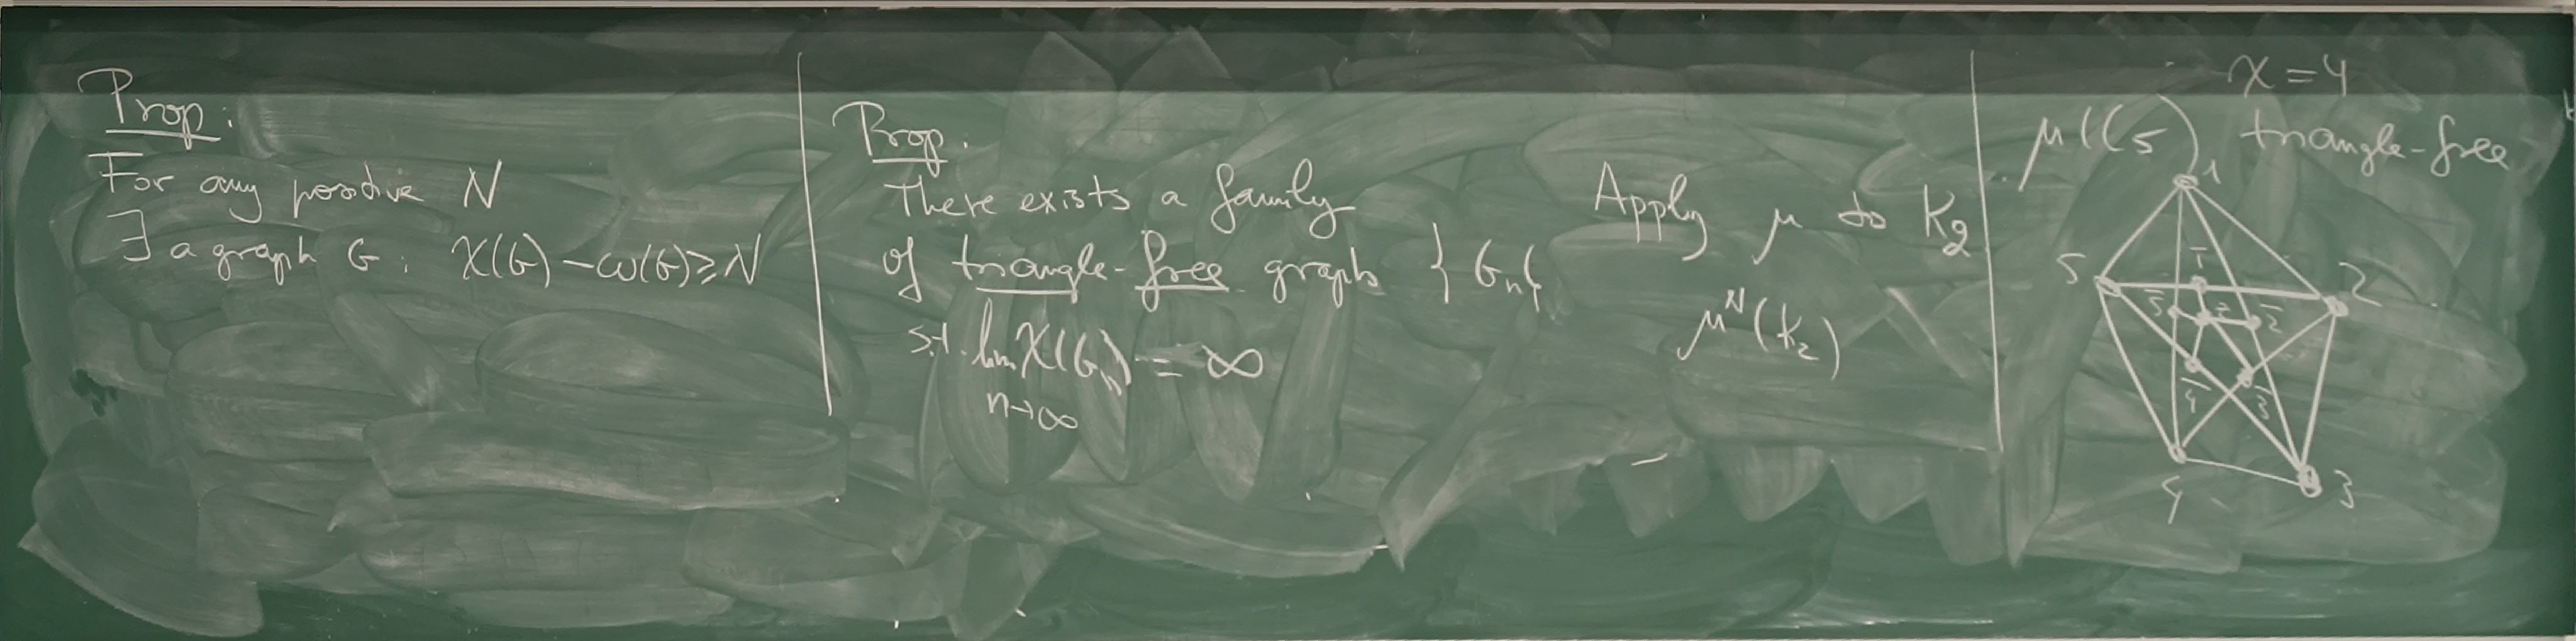 Prop:
For any positive N
∃ a graph G: χ(G) - ω(G) ≥ N
Prop.
There exists a family
of triangle-free graphs {Gn}
s.t. lim χ(Gn) = ∞
n→∞
Apply μ to K2
μ^N(K2)
χ = 4
μ(C5) triangle-free
1
5 1̄ 2
5̄ z 2̄
4̄ 3̄
4 3